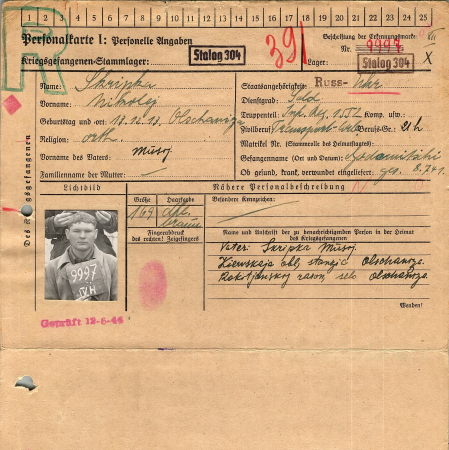 1 2 3 4 5 6 7 8 9 10 11 12 13 14 15 16 17 18 19 20 21 22 23 24 25
R
Personalkarte I: Personelle Angaben
Kriegsgefangenen-Stammlager: Stalag 304
39
Beschriftung der Erkennungsmarke
Nr. 9997
Lager: Stalag 304
X
Des Kriegsgefangenen
Name: Skripka
Vorname: Nikolej
Geburtstag und -ort: 18.12.13. Olschaniza
Religion: orth.
Vorname des Vaters: Musoj
Familienname der Mutter: —
Staatsangehörigkeit: RUSS- Ukr
Dienstgrad: Sold.
Truppenteil: Inf. Reg. 1 Komp. usw.:
Zivilberuf: Transport Berufs-Gr.: 21 h
Matrikel Nr. (Stammrolle des Heimatstaates):
Gefangennahme (Ort und Datum):
Ob gesund, krank, verwundet eingeliefert: ges. 8.7.41.
Lichtbild
Nähere Personalbeschreibung
Größe Haarfarbe Besondere Kennzeichen:
169 dkl. braun
Fingerabdruck
des rechten! Zeigefingers
Name und Anschrift der zu benachrichtigenden Person in der Heimat
des Kriegsgefangenen
Vater: Skripka Musoj
Kiewskaja obl. stanzia Olschaniza
Rakitjanskoj raion, selo Olschaniza.
Wenden!
9997
Geprüft 12-6-44